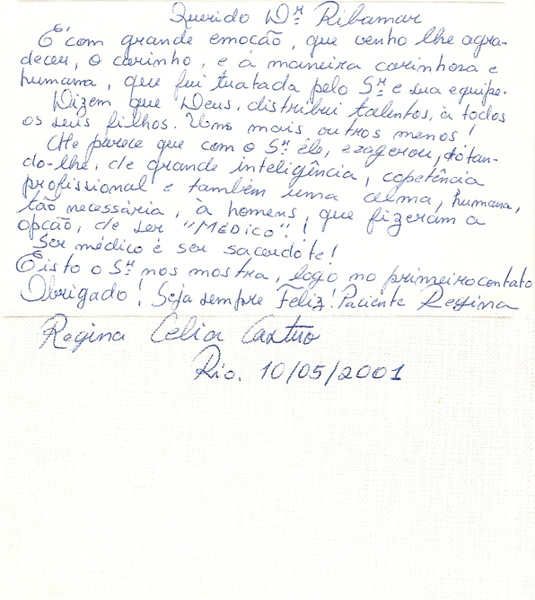 Querido Dr. Ribamar
É com grande emoção, que venho lhe agra-
decer, o carinho, e á maneira carinhosa e
humana, que fui tratada pelo Sr. e sua equipe.
Dizem que Deus, distribui talentos, à todos
os seus filhos. Uns mais outros menos!
Me parece que com o Sr. êle, exagerou, dotan-
do-lhe, de grande inteligência, copetência
profissional e também uma alma, humana,
tão necessária, à homens, que fizeram a
opção, de ser "MÉDICO"!
Ser médico é ser sacerdote!
E isto o Sr. nos mostra, logo no primeiro contato
Obrigado! Seja sempre Feliz! Paciente Regina
Regina Celia Castro
Rio. 10/05/2001